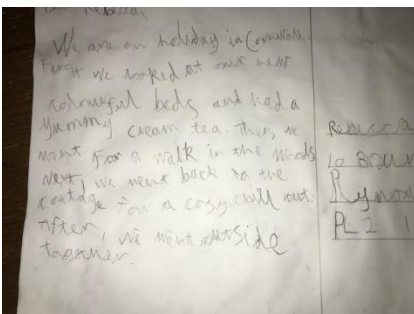 Dear Rebecca,
We are on holiday in Cornwall.
First we looked at our new
colourful beds and had a
yummy cream tea. Then, we
went for a walk in the woods
Next, we went back to the
cottage for a cosy chill out.
After, we went outside
together.
Rebecca
10
Plymou
PL2 1